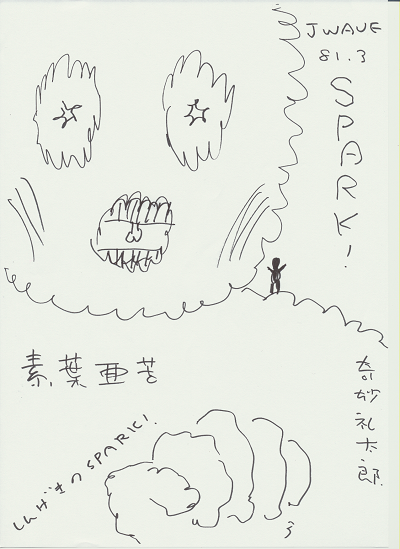 J WAVE
81.3
SPARK!
素葉亜苦
奇妙礼太郎
しんげきのSPARK!